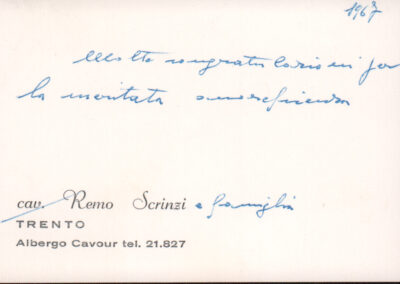 1967
Molte congratulazioni per
la meritata onorificenza
cav. Remo Scrinzi e famiglia
TRENTO
Albergo Cavour tel. 21.827